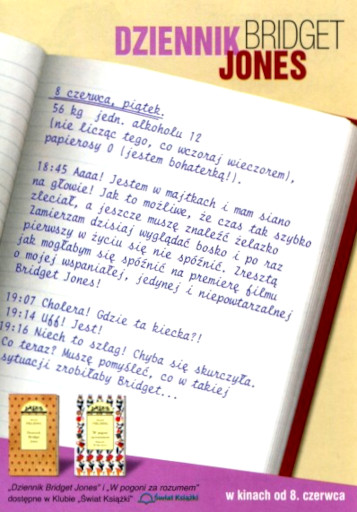 DZIENNIK BRIDGET
JONES
8 czerwca, piątek.
56 kg jedn. alkoholu 12
(nie licząc tego, co wczoraj wieczorem),
papierosy 0 (jestem bohaterką!).
18:45 Aaaa! Jestem w majtkach i mam siano
na głowie! Jak to możliwe, że czas tak szybko
zleciał, a jeszcze muszę znaleźć żelazko
Zamierzam dzisiaj wyglądać bosko i po raz
pierwszy w życiu się nie spóźnić. Zresztą
jak mogłabym się spóźnić na premierę filmu
o mojej wspaniałej, jedynej i niepowtarzalnej
Bridget Jones!
19:07 Cholera! Gdzie ta kiecka?!
19:14 Uff! Jest!
19:16 Niech to szlag! Chyba się skurczyła.
Co teraz? Muszę pomyśleć, co w takiej
sytuacji zrobiłaby Bridget...
„Dziennik Bridget Jones" i „W pogoni za rozumem"
dostępne w Klubie „Świat Książki" Świat Książki
w kinach od 8. czerwca